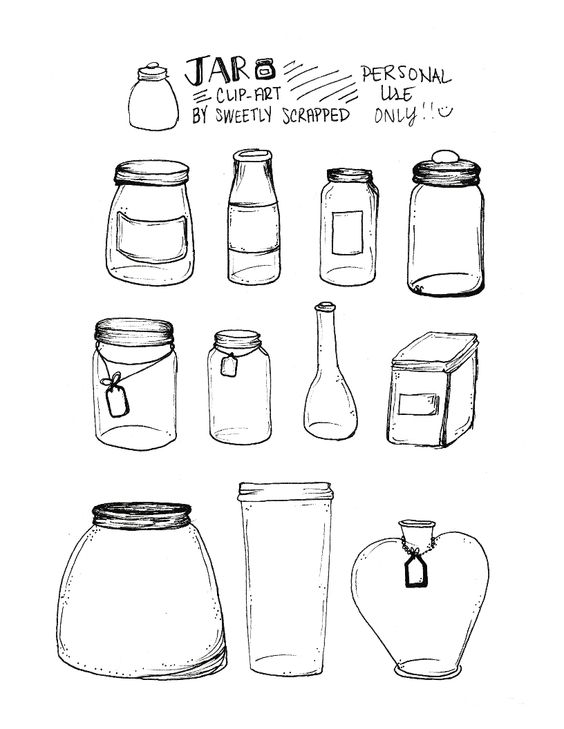 JAR
CLIP-ART
BY SWEETLY SCRAPPED
PERSONAL
USE
ONLY!!
SC